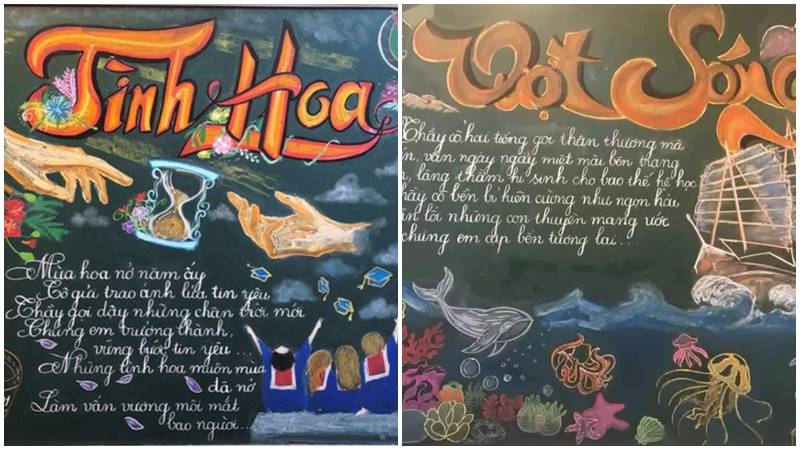 Tình Hoa
Mùa hoa nở năm ấy
Cô gửi trao ánh lửa tin yêu
Thầy gợi dậy những chân trời mới
Chúng em trưởng thành,
vững bước tin yêu ...
Những tinh hoa muôn mùa
đã nở
Làm vấn vương môi mắt
bao người...
Vượt Sóng
Thầy cô hai tiếng gọi thân thương mà
vẫn ngày ngày miệt mài bên trang
lặng thầm hi sinh cho bao thế hệ học
thầy cô bền bỉ kiên cường như ngọn hải
lối những con thuyền mang ước
chúng em cập bến tương lai...